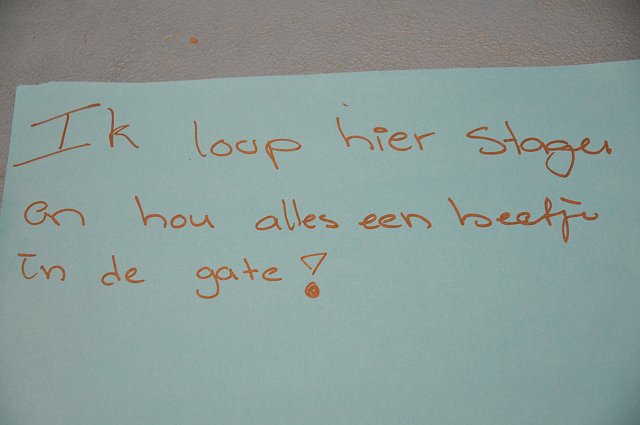 Ik loop hier stage
en hou alles een beetje
in de gate!